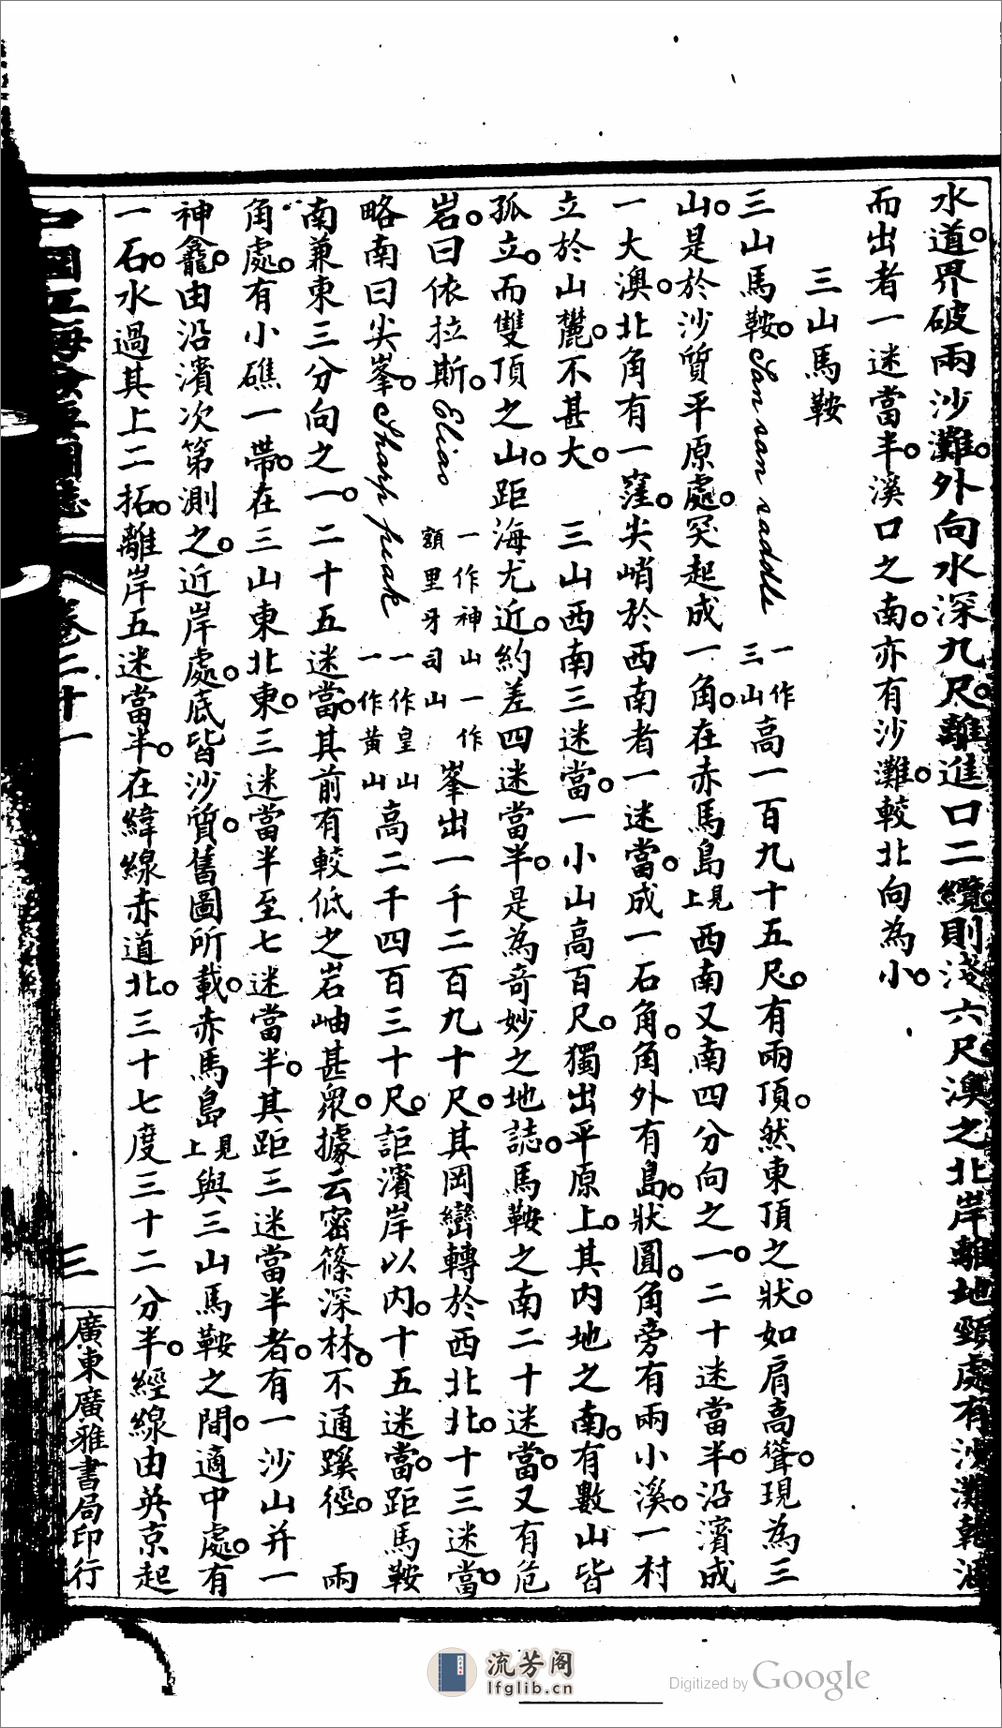 水道界破兩沙灘外向水深九尺離進口二纜則淺六尺澳之北岸離地頸處有沙灘乾涸
而出者一迷當半溪口之南亦有沙灘較北向為小
三山馬鞍
三山馬鞍San san saddle一作三山高一百九十五尺有兩頂然東頂之狀如肩高聳現為三
山是於沙質平原處突起成一角在赤馬島見上西南又南四分向之一二十迷當半沿濱成
一大澳北角有一窪尖峭於西南者一迷當成一石角角外有島狀圓角旁有兩小溪一村
立於山麓不甚大 三山西南三迷當一小山高百尺獨出平原上其內地之南有數山皆
孤立而雙頂之山距海尤近約差四迷當半是為奇妙之地誌馬鞍之南二十迷當又有危
岩曰依拉斯Elias一作神山一作額里牙司山峯出一千二百九十尺其岡巒轉於西北北十三迷當
略南曰尖峯Sharp peak一作皇山一作黃山高二千四百三十尺詎濱岸以內十五迷當距馬鞍
南兼東三分向之一二十五迷當其前有較低之岩岫甚眾據云密篠深林不通蹊徑 兩
角處有小礁一帶在三山東北東三迷當半至七迷當半其距三迷當半者有一沙山并一
神龕由沿濱次第測之近岸處底皆沙質舊圖所載赤馬島見上與三山馬鞍之間適中處有
一石水過其上二拓離岸五迷當半在緯線赤道北三十七度三十二分半經線由英京起
中國江海險要圖誌 卷二十一 三 廣東廣雅書局印行
流芳阁
lfglib.cn
Digitized by Google